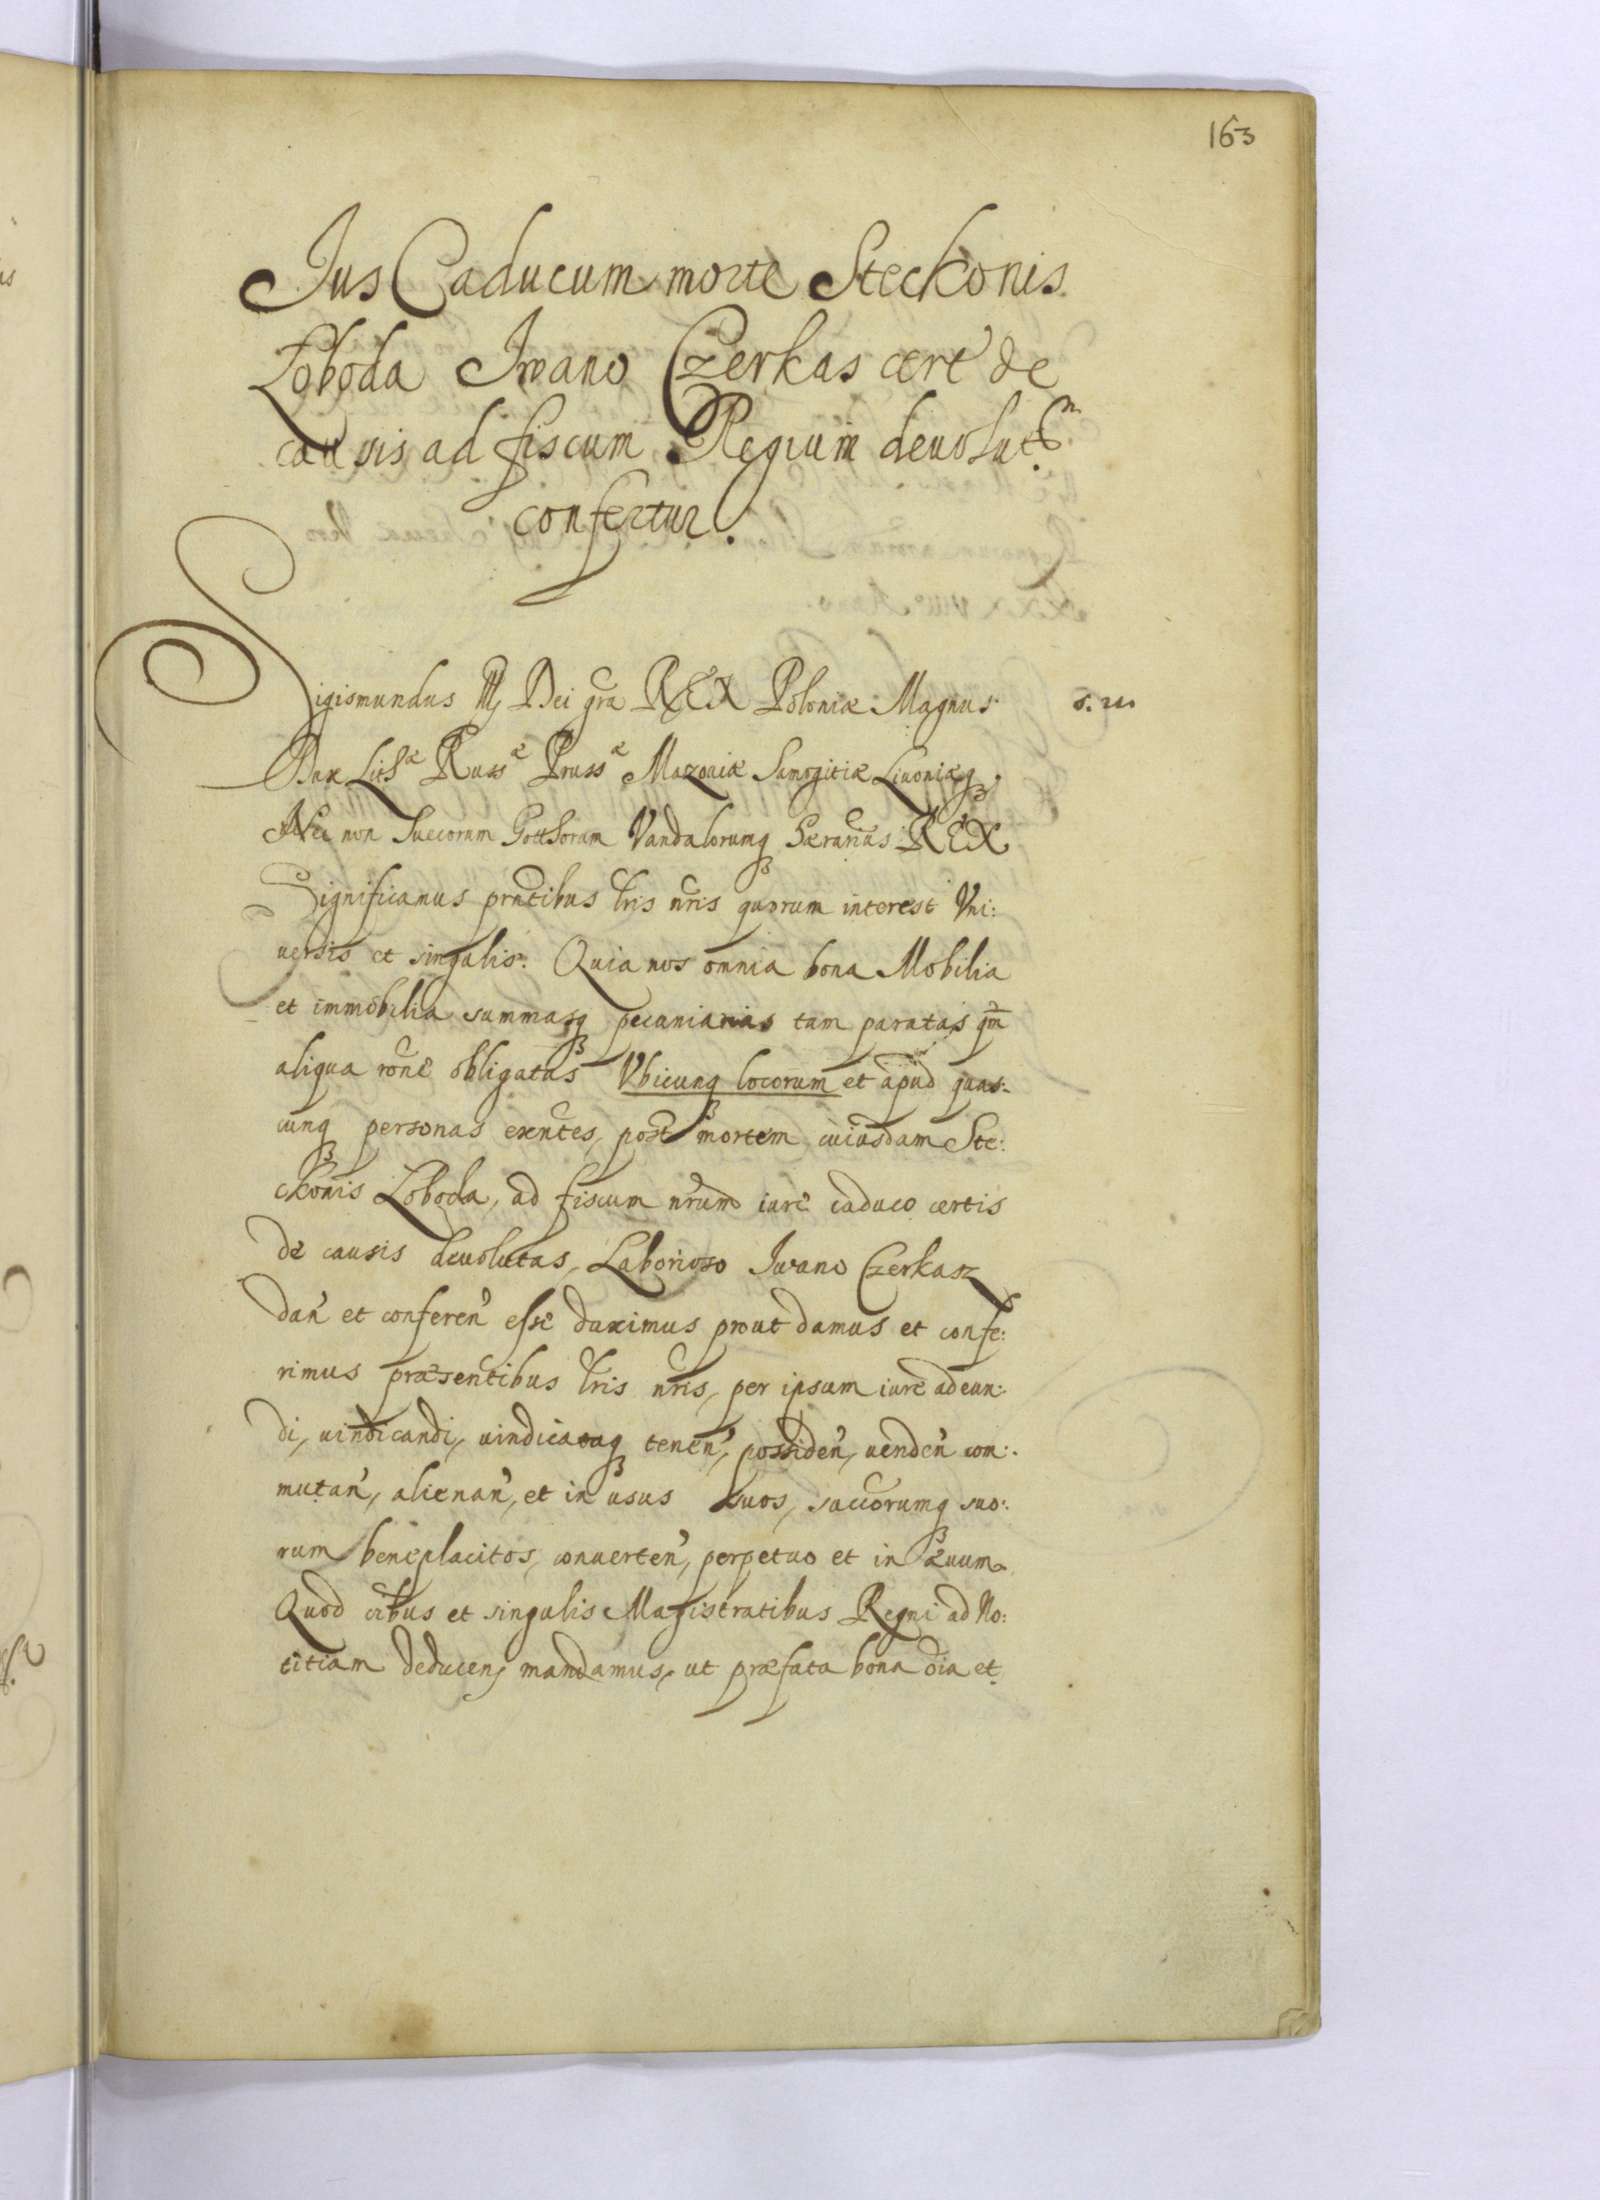 163
Jus Caducum morte Steckonis
Łoboda Iwano Czerkas cert de
causis ad fiscum Regium deuolut
confertur.
Sigismundus III Dei gra REX Poloniæ Magnus
Dux Lithæ Russæ Prussæ Mazouiæ Samogitiæ Liuoniæq
Nec non Suecorum Gotthorum Vandalorumq hæranus REX
Significamus prntibus lris nris quorum interest Vni:
uersis et singulis. Quia nos omnia bona Mobilia
et immobilia summasq pecuniarias tam paratas qm
aliqua rone obligatas Vbicunq locorum et apud quas:
cunq personas exntes, post mortem cuiusdam Ste:
ckonis Łoboda, ad fiscum nrum iure caduco certis
de causis deuolutas, Laborioso Iwano Czerkasz
dan et conferen esse duximus prout damus et confe:
rimus præsentibus lris nris, per ipsum iure adeun:
di, uindicandi, uindicataq tenen, possiden, uenden com:
mutan, alienan, et in usus suos, succorumq suo:
rum beneplacitos, conuerten, perpetuo et in æuum
Quod oibus et singulis Magistratibus Regni ad No:
titiam deducen, mandamus, ut præfata bona oia et